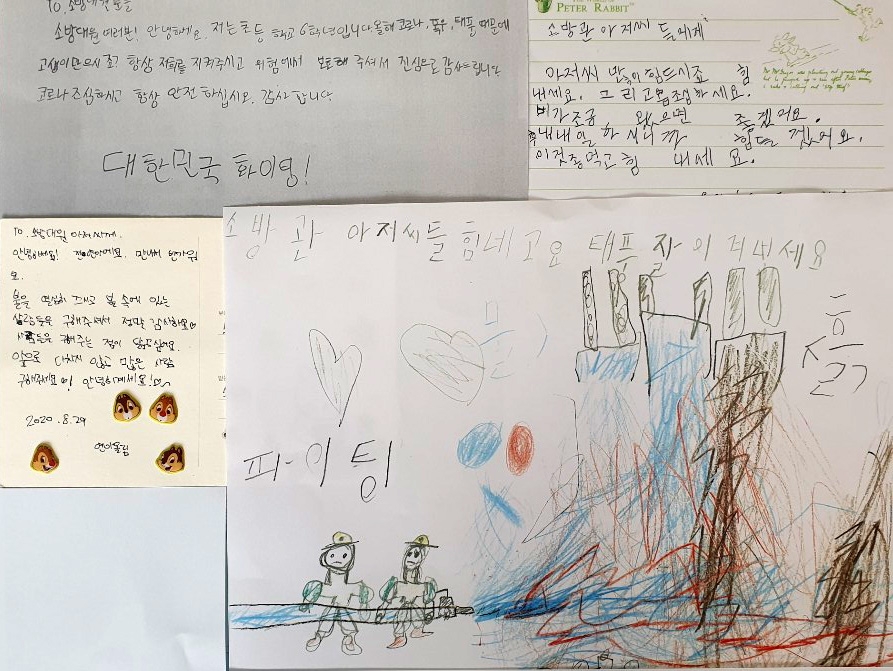 To. 소방대원분들
소방대원 여러분! 안녕하세요. 저는 초등학교 6학년입니다. 올해 코로나, 폭우, 태풍 때문에
고생이 많으시죠? 항상 저희를 지켜주시고 위험에서 보호해 주셔서 진심으로 감사드립니다
코로나 조심하시고 항상 안전하십시오. 감사합니다.
대한민국 화이팅!
THE WORLD OF
PETER RABBIT™
소방관 아저씨들에게
아저씨 많이 힘드시죠 힘
내세요. 그리고 몸조심하세요.
비가 조금 왔으면 좋겠어요.
내내 일 하시니까 힘들겠어요.
이것좀 먹고 힘 내세요.
To. 소방대원 아저씨께.
안녕하세요! 만나서 반가워
요.
불을 열심히 끄시고 불 속에 있는
사람들을 구해주셔서 정말 감사해요
사람들을 구해주는 점이 닮고싶어요.
앞으로 다치지 않고 많은 사람
구해주세요! 안녕히계세요!
2020.8.29
연이올림
소방관 아저씨들 힘네고요 태풍 잘 이겨내세요
물
불
파이팅